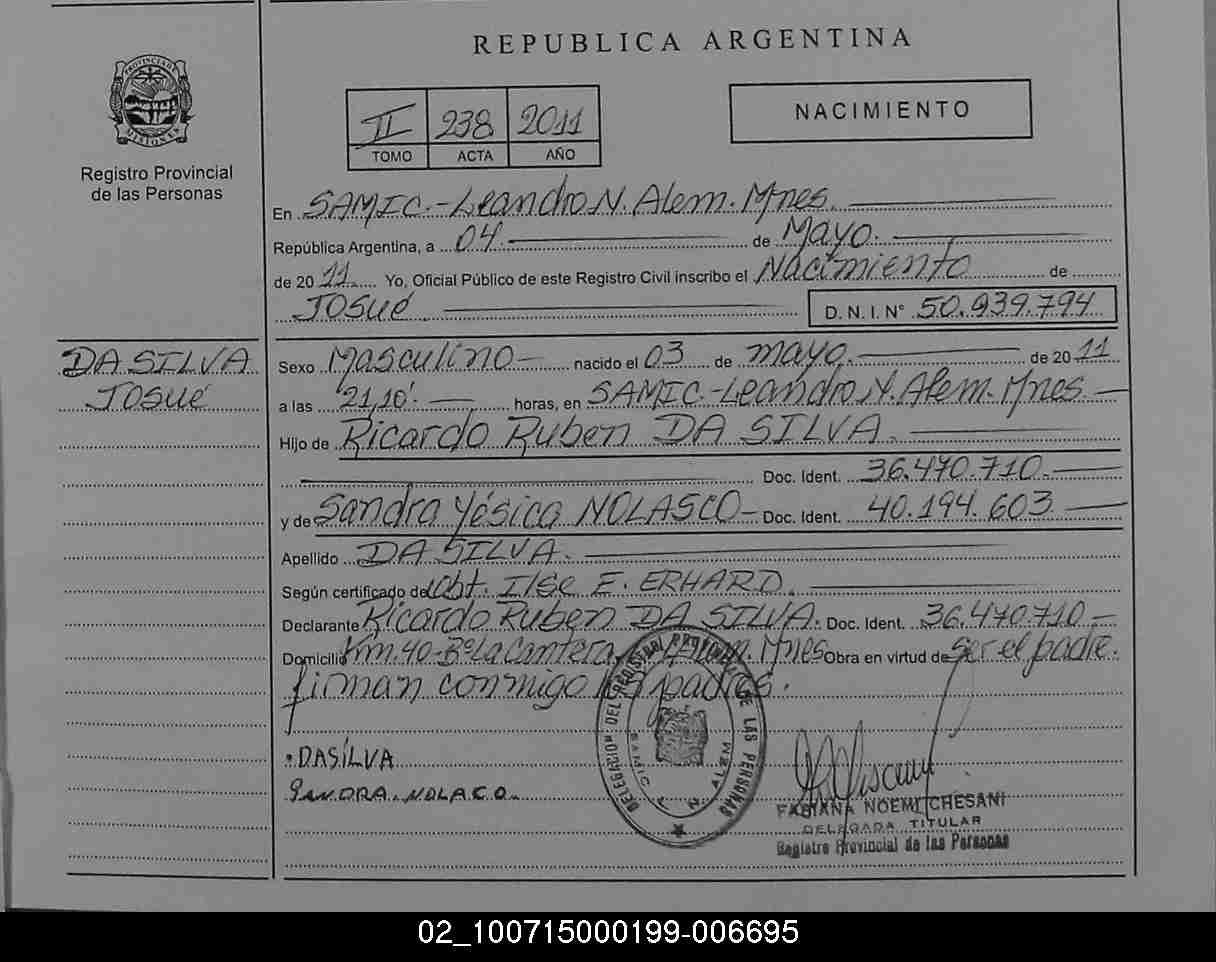 REPUBLICA ARGENTINA
PROVINCIA DE MISIONES
Registro Provincial
de las Personas
II 238 2011
TOMO ACTA AÑO
NACIMIENTO
En SAMIC.-Leandro N. Alem. Mnes.
República Argentina, a 04 de Mayo.
de 2011 Yo, Oficial Público de este Registro Civil inscribo el Nacimiento de
Josué. D. N. I. N° 50.939.794
DA SILVA
Josué
Sexo Masculino nacido el 03 de mayo. de 2011
a las 21,10'. horas, en SAMIC.-Leandro N. Alem. Mnes.
Hijo de Ricardo Ruben DA SILVA.
Doc. Ident. 36.470.710.
y de Sandra Yésica NOLASCO Doc. Ident. 40.194.603.
Apellido DA SILVA.
Según certificado de Obt. Ilse E. ERHARD.
Declarante Ricardo Ruben DA SILVA. Doc. Ident. 36.470.710
Domicilio Km. 40-B° La Cantera Mnes Obra en virtud de ser el padre.
firman conmigo los padres.
DELEGACION DEL REGISTRO PROVINCIAL DE LAS PERSONAS
SAMIC L. N. ALEM
DASÍLVA
SANDRA. NOLACO.
FABIANA NOEMI CHESANI
DELEGADA TITULAR
Registro Provincial de las Personas
02_100715000199-006695